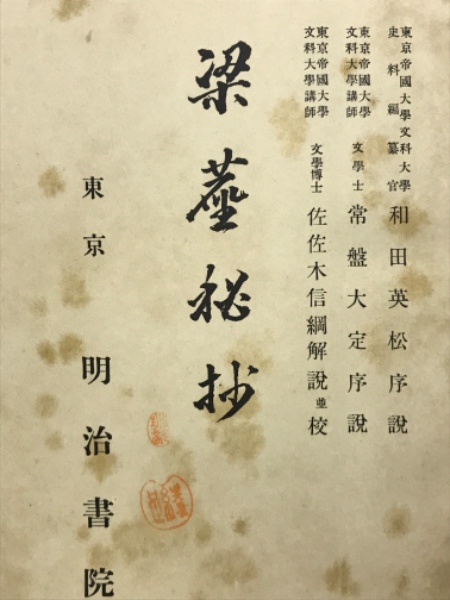 東京帝國大學文科大學
史料編纂官
和田英松序說
東京帝國大學
文科大學講師
文學士
常盤大定序說
東京帝國大學
文科大學講師
文學博士
佐佐木信綱解說並校
梁塵秘抄
東京 明治書院